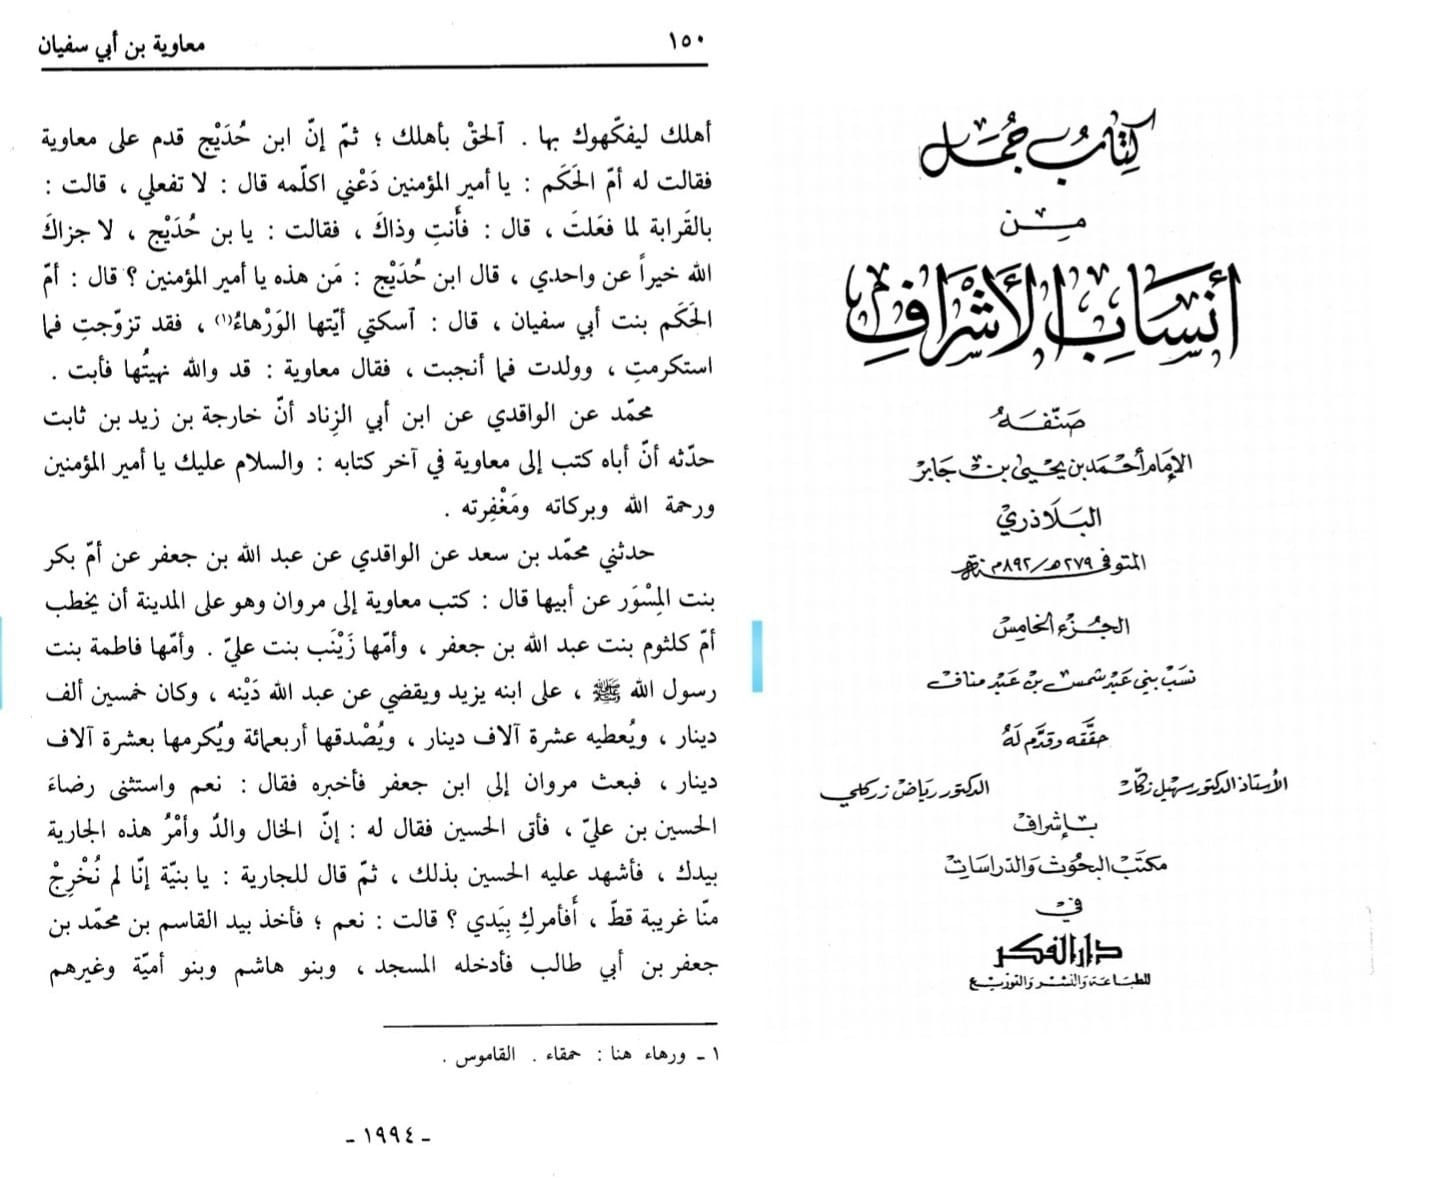 كتاب جمل
من
أنساب الأشراف
صنّفه
الإمام أحمد بن يحيى بن جابر
البلاذري
المتوفى ٢٧٩هـ/٨٩٢م
الجزء الخامس
نسب بني عبد شمس بن عبد مناف
حققه وقدّم له
الأستاذ الدكتور سهيل زكّار الدكتور رياض زركلي
بإشراف
مكتب البحوث والدراسات
في
دار الفكر
للطباعة والنشر والتوزيع
١٥٠ معاوية بن أبي سفيان
أهلك ليفكّهوك بها . ٱلحقْ بأهلك ؛ ثمّ إنّ ابن حُدَيْج قدم على معاوية
فقالت له أمّ الحَكَم : يا أمير المؤمنين دَعْني اكلّمه قال : لا تفعلي ، قالت :
بالقَرابة لما فعَلتَ ، قال : فأَنتِ وذاكَ ، فقالت : يا بن حُدَيْج ، لا جزاكَ
الله خيراً عن واحدي ، قال ابن حُدَيْج : مَن هذه يا أمير المؤمنين ؟ قال : أمّ
الحَكَم بنت أبي سفيان ، قال : ٱسكتي أيّتها الوَرْهاءُ(١) ، فقد تزوّجتِ فما
استكرمتِ ، وولدت فما أنجبت ، فقال معاوية : قد والله نهيتُها فأبت .
محمّد عن الواقدي عن ابن أبي الزِناد أنّ خارجة بن زيد بن ثابت
حدّثه أنّ أباه كتب إلى معاوية في آخر كتابه : والسلام عليك يا أمير المؤمنين
ورحمة الله وبركاته ومَغْفِرته .
حدثني محمّد بن سعد عن الواقدي عن عبد الله بن جعفر عن أمّ بكر
بنت المِسْوَر عن أبيها قال : كتب معاوية إلى مروان وهو على المدينة أن يخطب
أمّ كلثوم بنت عبد الله بن جعفر ، وأمّها زَيْنَب بنت عليّ . وأمّها فاطمة بنت
رسول الله ﷺ ، على ابنه يزيد ويقضي عن عبد الله دَيْنه ، وكان خمسين ألف
دينار ، ويُعطيه عشرة آلاف دينار ، ويُصْدقها أربعمائة ويُكرمها بعشرة آلاف
دينار ، فبعث مروان إلى ابن جعفر فأخبره فقال : نعم واستثنى رضاءَ
الحسين بن عليّ ، فأتى الحسين فقال له : إنّ الخال والدٌ وأمْرُ هذه الجارية
بيدك ، فأشهد عليه الحسين بذلك ، ثمّ قال للجارية : يا بنيّة إنّا لم نُخْرِجْ
منّا غريبة قطّ ، أَفأمركِ بِيَدي ؟ قالت : نعم ؛ فأخذ بيد القاسم بن محمّد بن
جعفر بن أبي طالب فأدخله المسجد ، وبنو هاشم وبنو أميّة وغيرهم
١ - ورهاء هنا : حمقاء . القاموس .
- ١٩٩٤ -